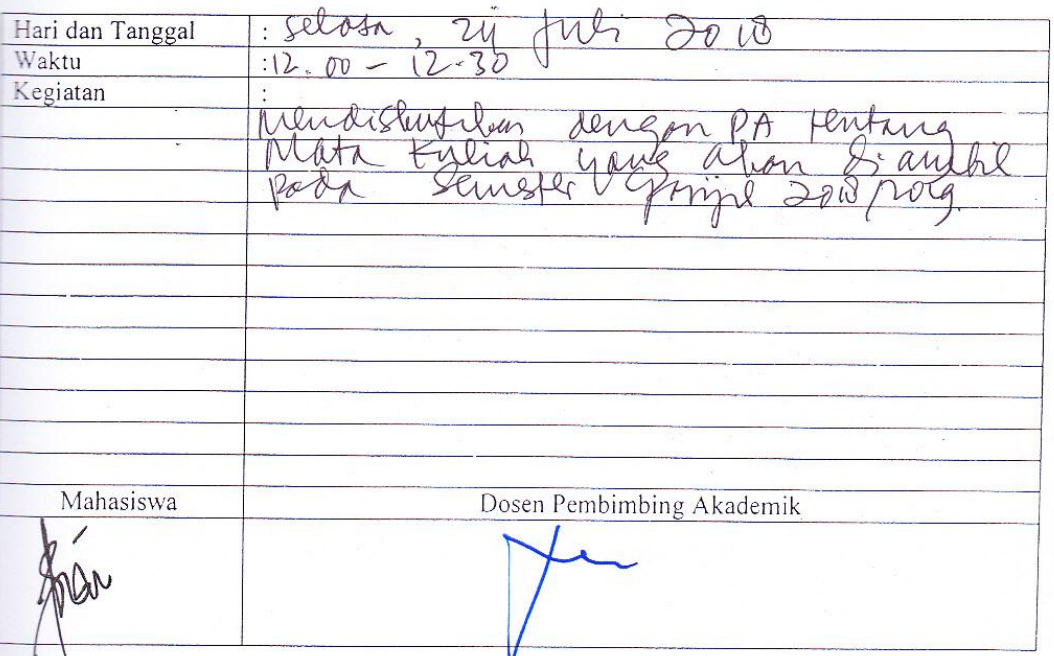 Hari dan Tanggal : selasa, 24 Juli 2018
Waktu :12.00 - 12.30
Kegiatan :
Mendiskusikan dengan PA tentang
Mata Kuliah yang akan diambil
pada semester Ganjil 2018/2019.
Mahasiswa Dosen Pembimbing Akademik